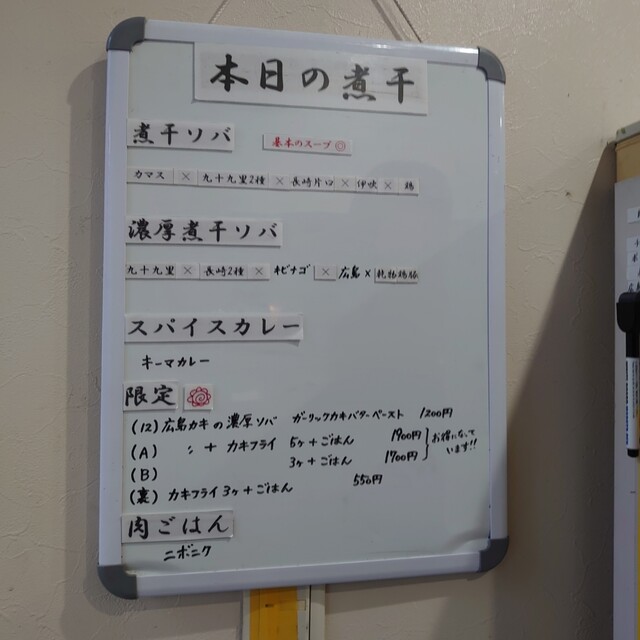 本日の煮干
煮干ソバ 基本のスープ◎
カマス × 九十九里2種 × 長崎片口 × 伊吹 × 鶏
濃厚煮干ソバ
九十九里 × 長崎2種 × キビナゴ × 広島 × 乾物鶏豚
スパイスカレー
キーマカレー
限定
(12)広島カキの濃厚ソバ ガーリックカキバターペースト 1200円
(A) 〃 + カキフライ 5ヶ+ごはん 1900円
(B) 3ヶ+ごはん 1700円 お得になっています!!
(裏) カキフライ3ヶ+ごはん 550円
肉ごはん
ニボニク